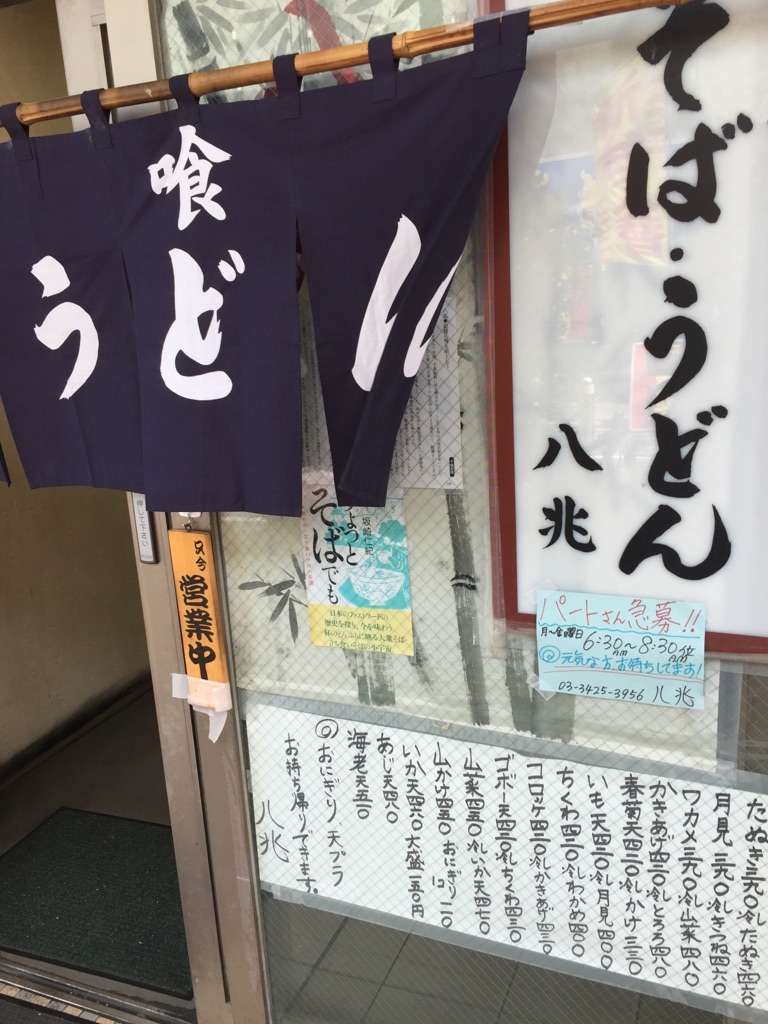 喰
うど
そば・うどん
八兆
押して下さい
只今
営業中
坂崎仁紀
ちょっと
そばでも
日本のファストフードの
歴史を探り、今を味わう。
パートさん急募!!
月〜金曜日 6:30AM〜8:30AM位
◎元気な方、お待ちしてます!
03-3425-3956 八兆
たぬき三九〇 冷したぬき四六〇
月見三九〇 冷しきつね四六〇
ワカメ三九〇 冷し山菜四八〇
かきあげ四三〇 冷しとろろ四八〇
春菊天四三〇 冷しかけ三三〇
いも天四三〇 冷し月見四〇〇
ちくわ四三〇 冷しわかめ四〇〇
コロッケ四三〇 冷しかきあげ四三〇
ゴボー天四三〇 冷しちくわ四三〇
山菜四五〇 冷しいか天四七〇
山かけ四五〇 おにぎり1コ一二〇
いか天四六〇 大盛一五〇円
あじ天四八〇
海老天五一〇
◎おにぎり、天プラ
お持ち帰りできます。
八兆